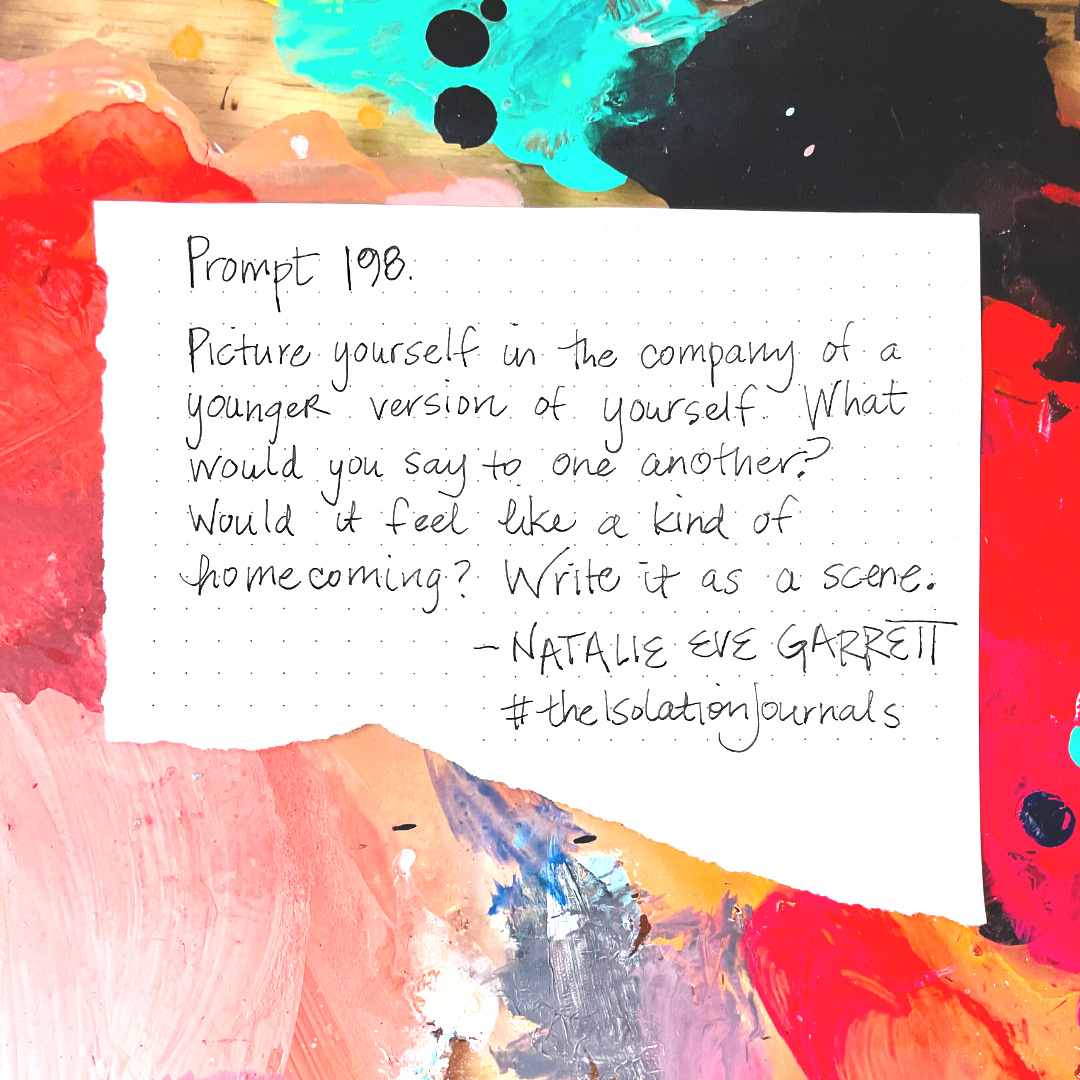 Prompt 198.
Picture yourself in the company of a
younger version of yourself. What
would you say to one another?
Would it feel like a kind of
homecoming? Write it as a scene.
- NATALIE EVE GARRETT
#theIsolationJournals